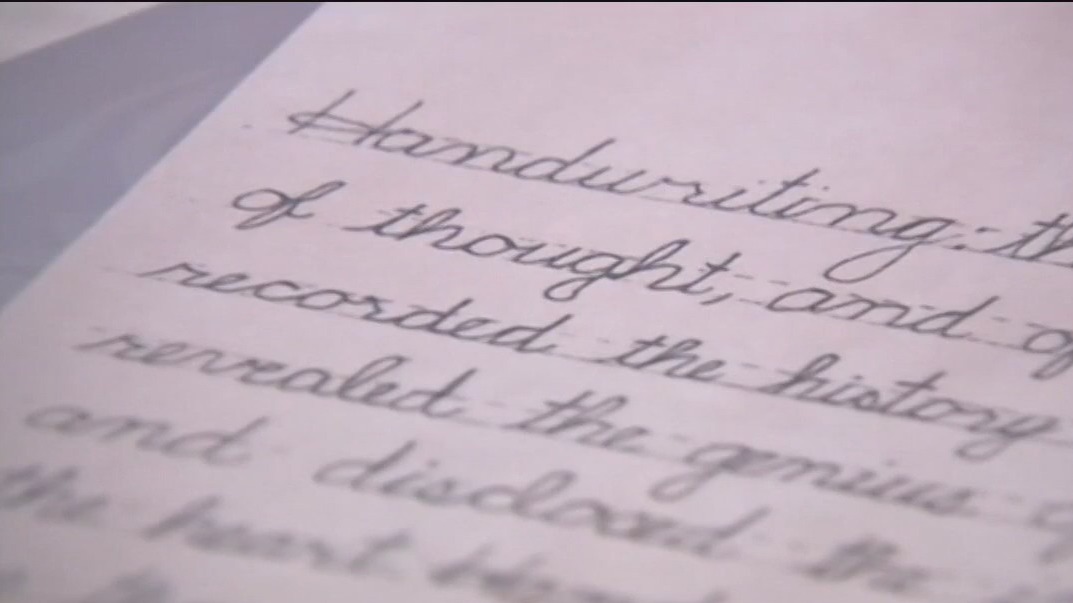 Handwriting: th
of thought, and of
recorded the history
revealed the genius
and disclosed the
the heart